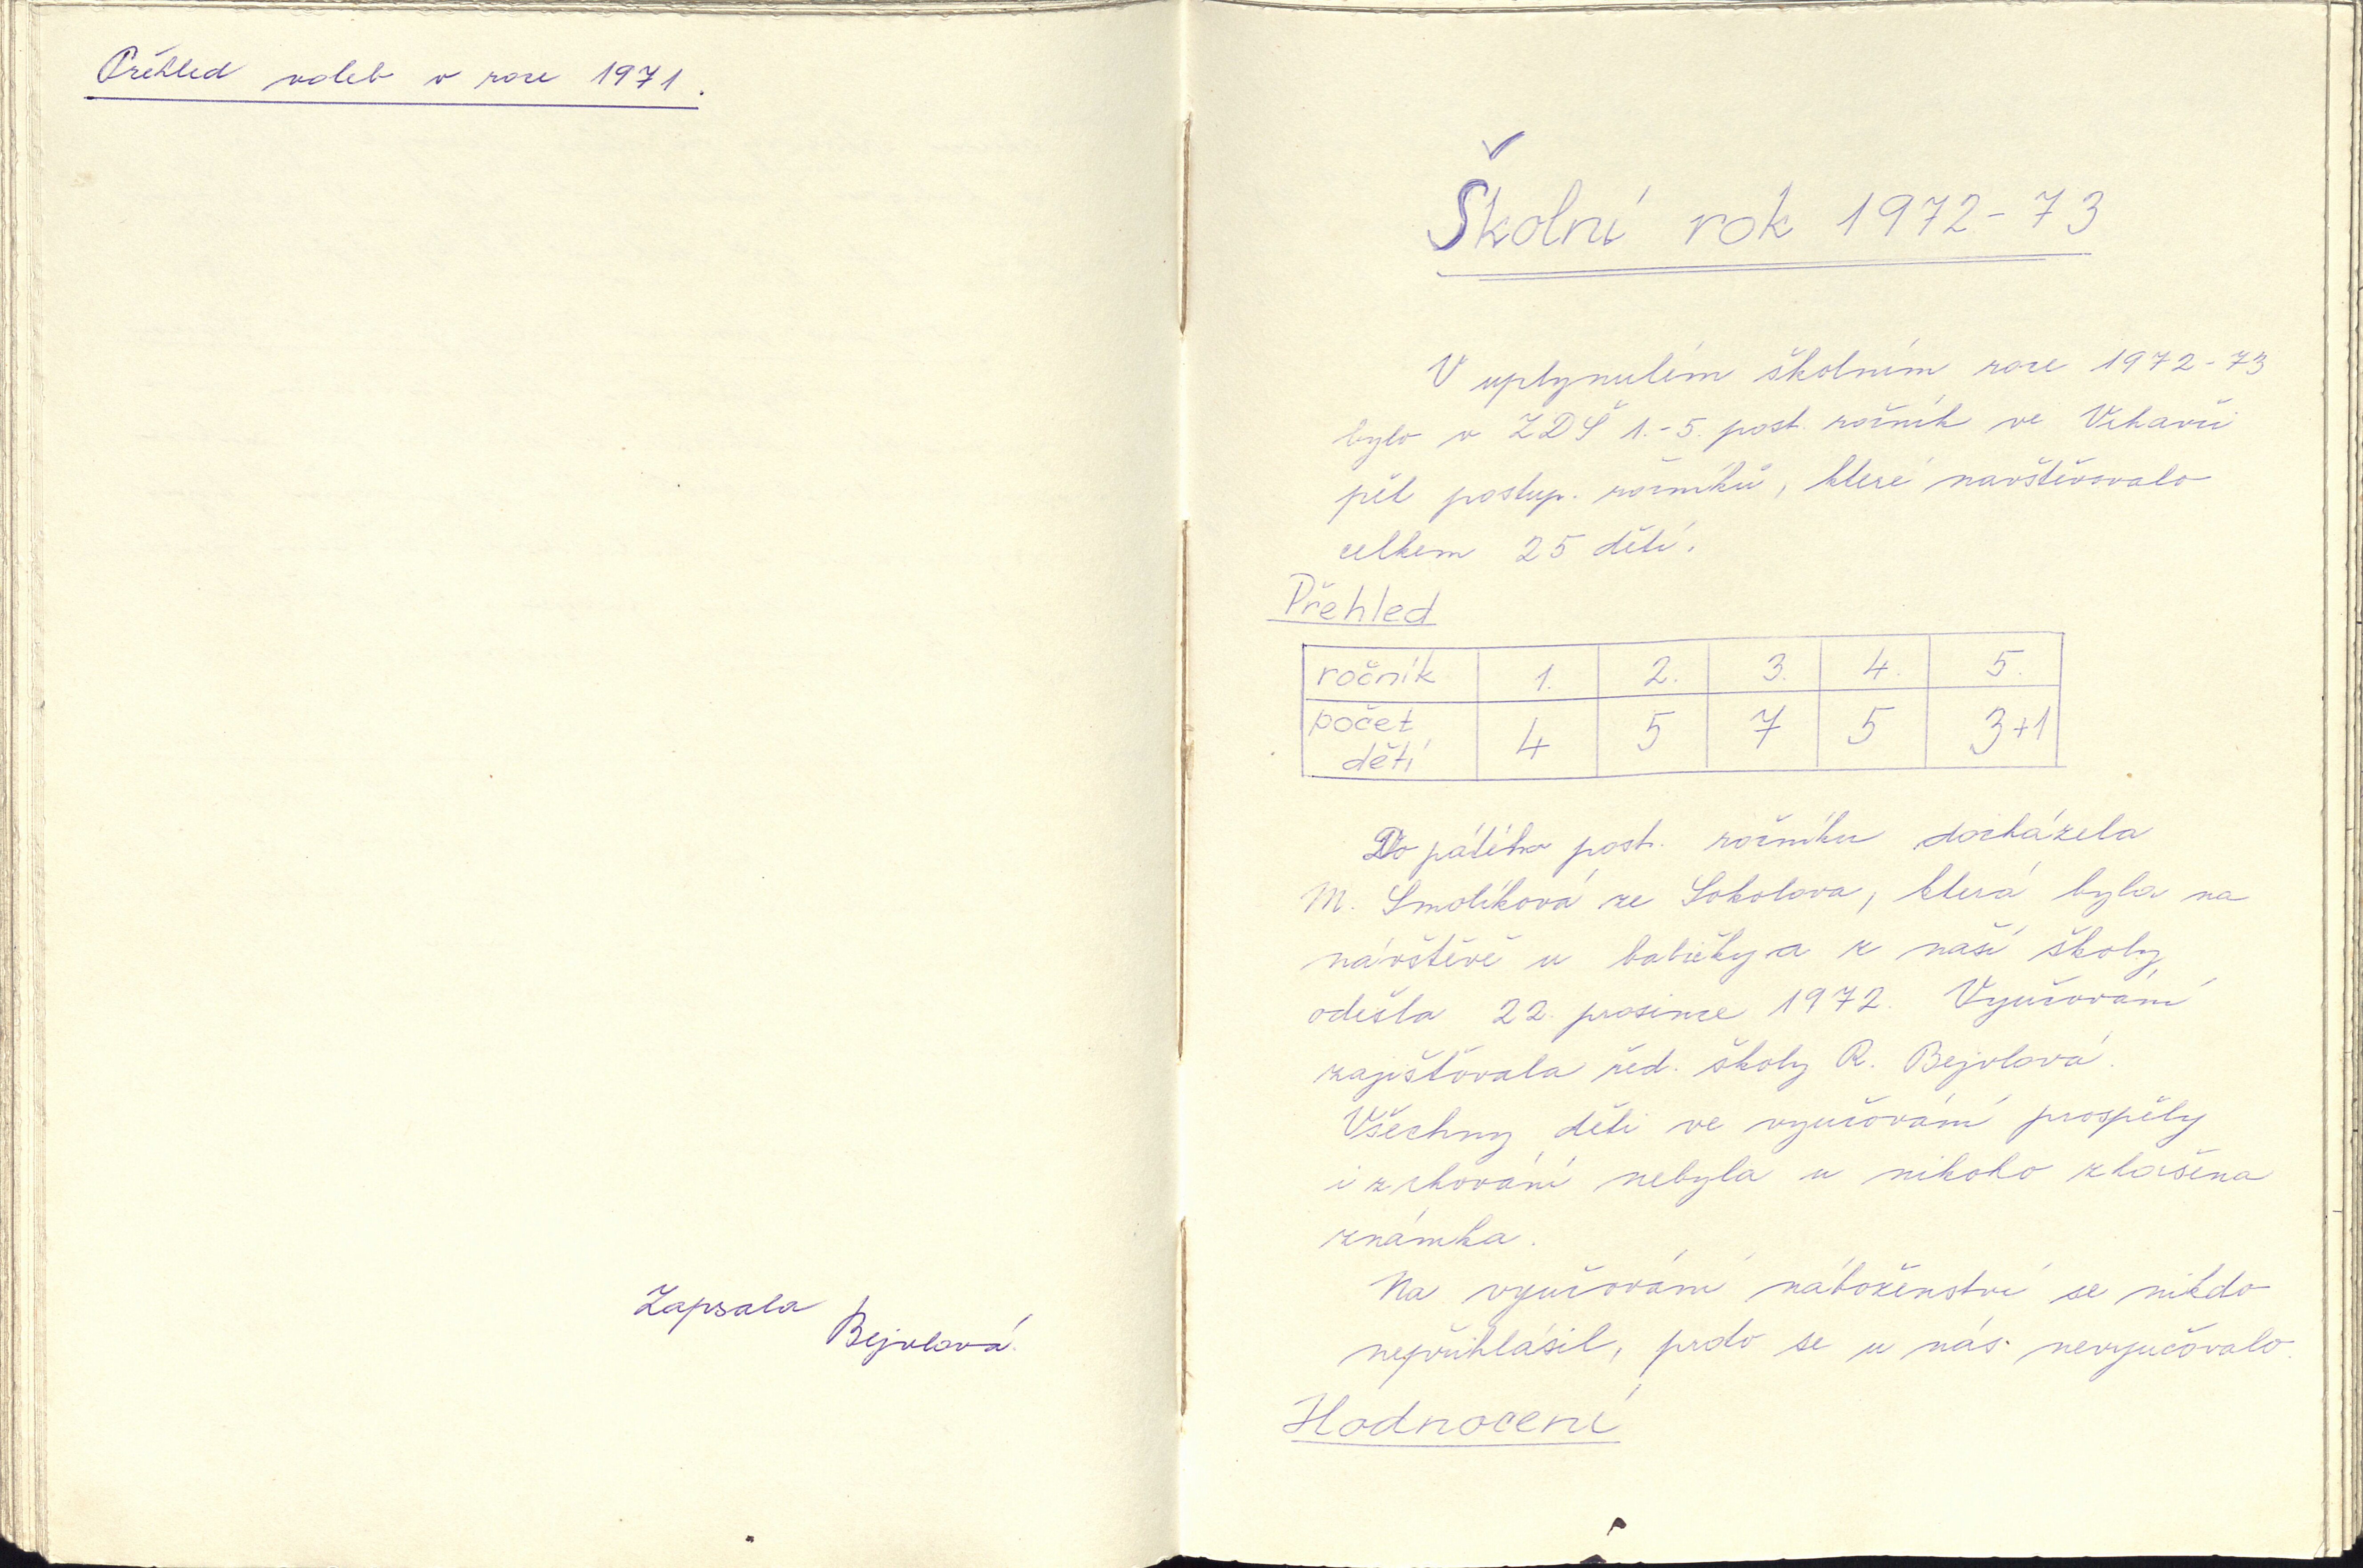 Přehled voleb v roce 1971.
Zapsala
Bejvlová.
Školní rok 1972-73
V uplynulém školním roce 1972-73
bylo v ZDŠ 1.-5. post. ročník ve Vrhavči
pět postup. ročníků, které navštěvovalo
celkem 25 dětí.
Přehled
ročník 1. 2. 3. 4. 5.
počet dětí 4 5 7 5 3+1
Do pátého post. ročníku docházela
M. Smolíková ze Sokolova, která byla na
návštěvě u babičky a z naší školy
odešla 22. prosince 1972. Vyučování
zajišťovala řed. školy R. Bejvlová.
Všechny děti ve vyučování prospěly
i z chování nebyla u nikoho zhoršena
známka.
Na vyučování náboženství se nikdo
nepřihlásil, proto se u nás nevyučovalo.
Hodnocení